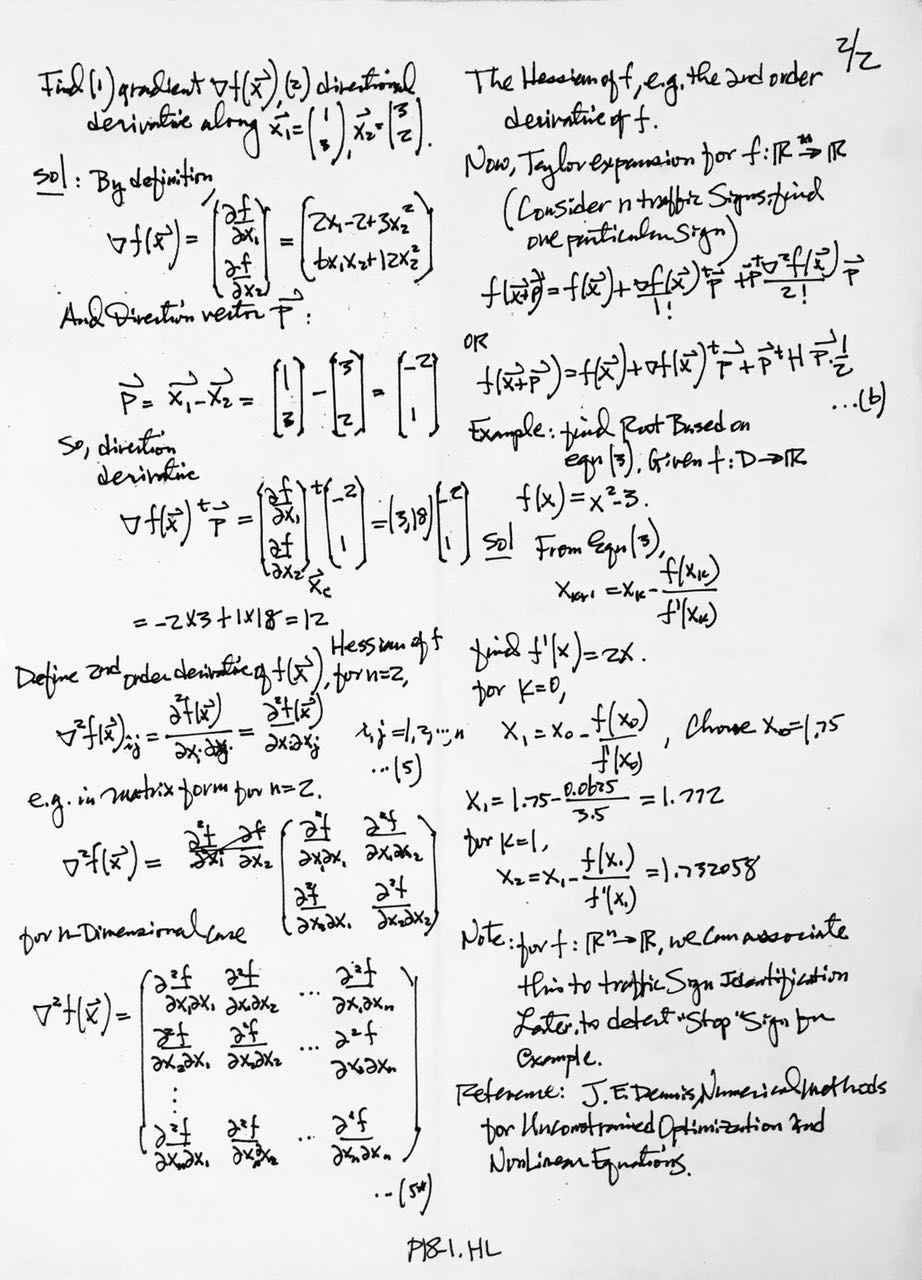 2/2
Find (1) gradient ∇f(x⃗), (2) directional
derivative along x⃗₁ = (1 3), x⃗₂ = (3 2).
Sol: By definition
∇f(x⃗) = (∂f/∂x₁ ∂f/∂x₂) = (2x₁-2+3x₂² 6x₁x₂+12x₂²)
And Direction vector p⃗:
p⃗ = x⃗₁ - x⃗₂ = (1 3) - (3 2) = (-2 1)
So, direction
derivative
∇f(x⃗)ᵗ p⃗ = (∂f/∂x₁ ∂f/∂x₂)ᵗ x⃗c (-2 1) = (3,18) (-2 1)
= -2×3+1×18 = 12
Hessian of f
Define 2nd order derivative of f(x⃗), for n=2,
∇²f(x⃗)ij = ∂²f(x⃗)/∂xi∂xj = ∂²f(x⃗)/∂xi∂xj i,j = 1,2,…,n
…(5)
e.g. in matrix form for n=2.
∇²f(x⃗) = (∂²f/∂x₁∂x₁ ∂²f/∂x₁∂x₂
∂²f/∂x₂∂x₁ ∂²f/∂x₂∂x₂)
for n-Dimensional case
∇²f(x⃗) = (∂²f/∂x₁∂x₁ ∂²f/∂x₁∂x₂ … ∂²f/∂x₁∂xn
∂²f/∂x₂∂x₁ ∂²f/∂x₂∂x₂ … ∂²f/∂x₂∂xn
⋮
∂²f/∂xn∂x₁ ∂²f/∂xn∂x₂ … ∂²f/∂xn∂xn)
…(5*)
The Hessian of f, e.g. the 2nd order
derivative of f.
Now, Taylor expansion for f: ℝⁿ→ℝ
(Consider n traffic Signs, find
one particular sign)
f(x⃗+p⃗) = f(x⃗) + ∇f(x⃗)ᵗ/1! p⃗ + p⃗ᵗ ∇²f(x⃗)/2! p⃗
OR
f(x⃗+p⃗) = f(x⃗) + ∇f(x⃗)ᵗ p⃗ + p⃗ᵗ H p⃗·1/2
…(6)
Example: find Root Based on
eqn (3), Given f: D→ℝ
f(x) = x²-3.
Sol From Eqn (3),
xK+1 = xK - f(xK)/f'(xK)
find f'(x) = 2x.
for K=0,
x₁ = x₀ - f(x₀)/f'(x₀), Choose x₀=1.75
x₁ = 1.75 - 0.0625/3.5 = 1.772
for K=1,
x₂ = x₁ - f(x₁)/f'(x₁) = 1.732058
Note: for f: ℝⁿ→ℝ, we can associate
this to traffic Sign Identification
Later, to detect "Stop" Sign for
Example.
Reference: J.E. Dennis, Numerical Methods
for Unconstrained Optimization and
NonLinear Equations.
P18-1. HL